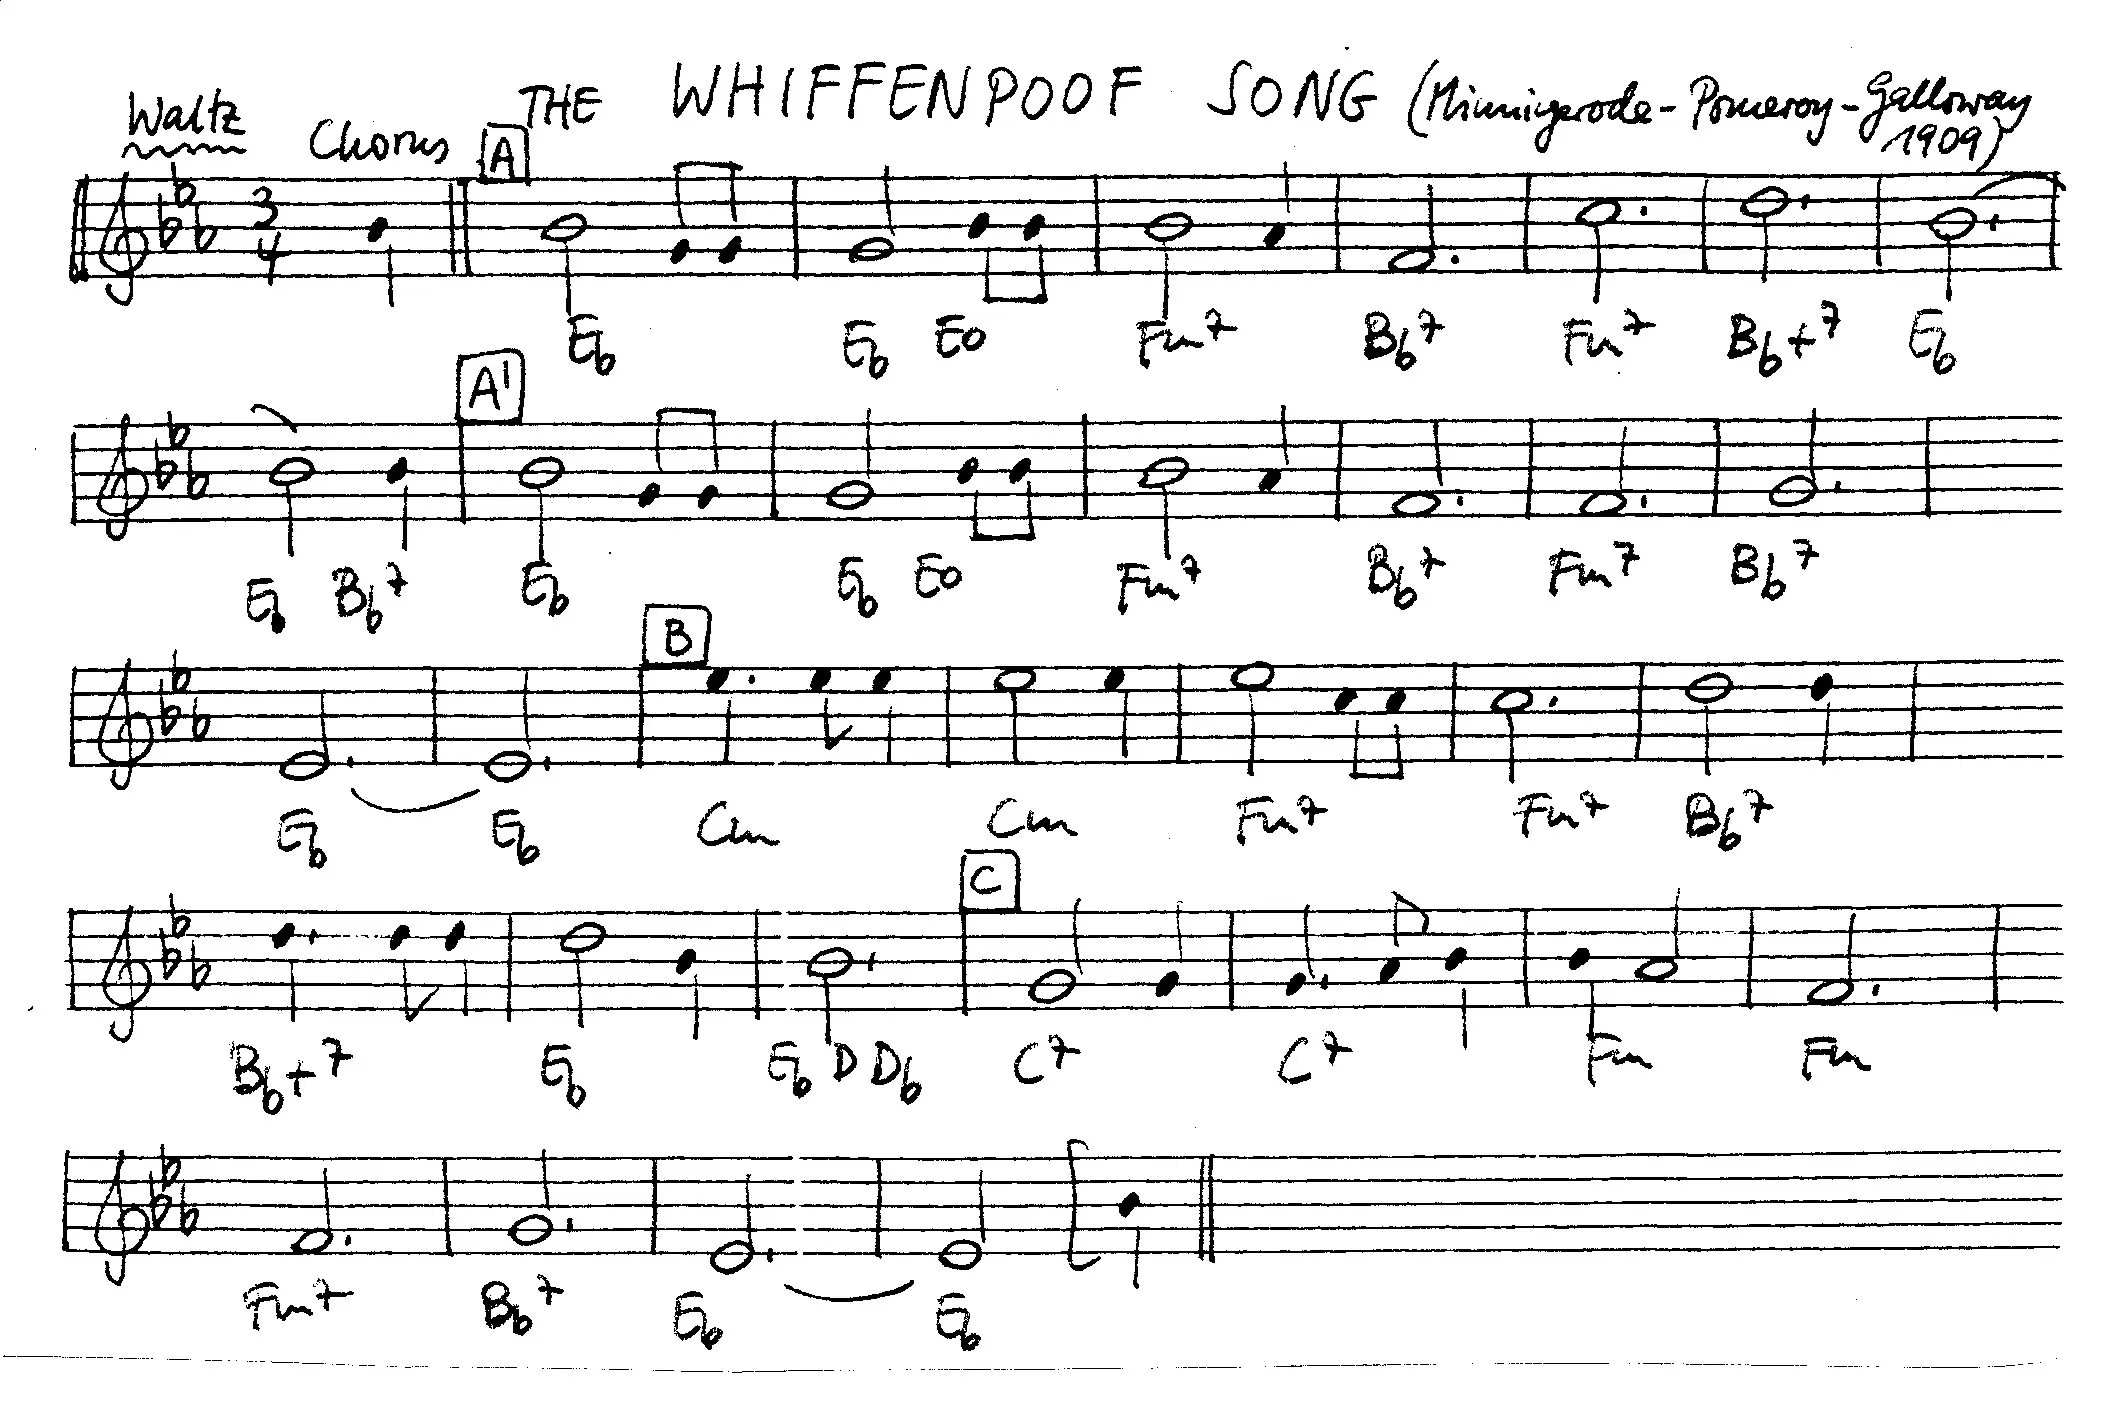 THE WHIFFENPOOF SONG (Minnigerode-Pomeroy-Galloway
1909)
Waltz Chorus A
3
4
Eb Eb Eo Fm7 Bb7 Fm7 Bb+7 Eb
A'
Eb Bb7 Eb Eb Eo Fm7 Bb7 Fm7 Bb7
B
Eb Eb Cm Cm Fm7 Fm7 Bb7
C
Bb+7 Eb Eb D Db C7 C7 Fm Fm
Fm7 Bb7 Eb Eb